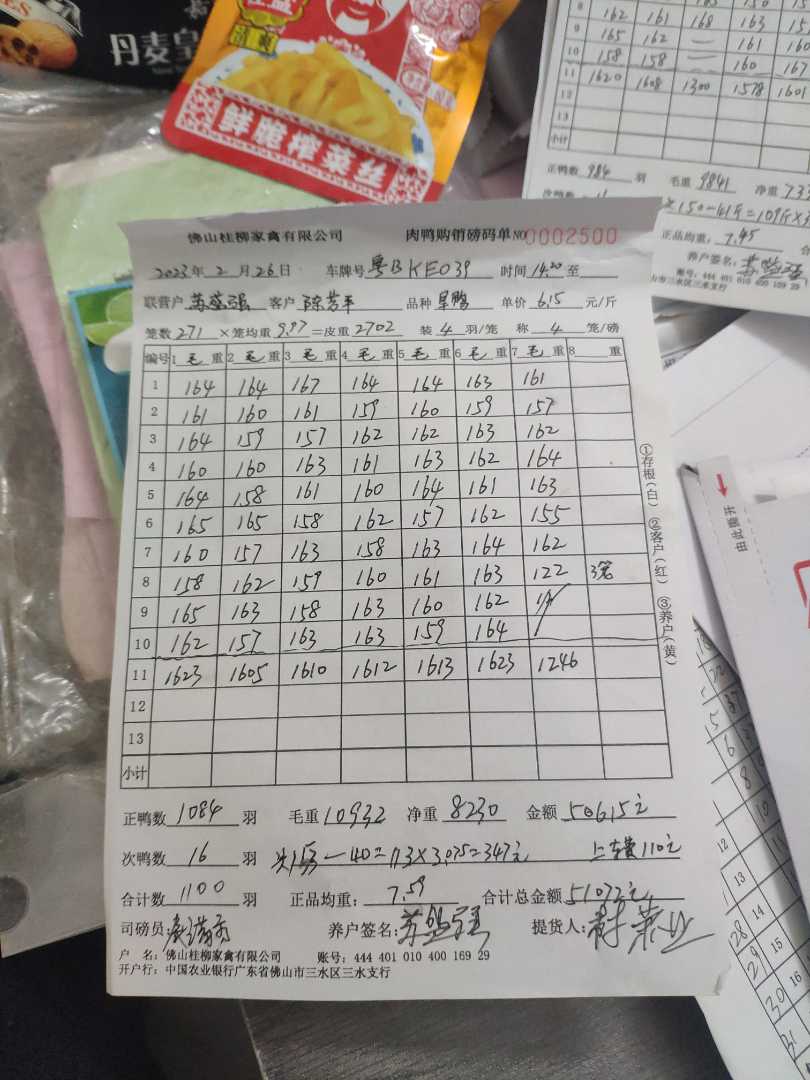 丹麦皇
清爽
鲜脆榨菜丝
8 162 161 168 163
9 165 162 — 161 160
10 158 158 — 160 167
11 1620 1608 1300 1578 1601
12
13
小计
正鸭数 984 羽 毛重 9841 净重
正品均重: 7.45
养户签名:
账号: 444 401 010 400 169 29
山市三水区三水支行
佛山桂柳家禽有限公司 肉鸭购销磅码单 NO 0002500
2023年 2月 26日 车牌号 粤B KE039 时间 14:20 至
联营户 苏盛强 客户 陈芳平 品种 旱鸭 单价 6.15 元/斤
笼数 271 ×笼均重 9.97 =皮重 2702 装 4 羽/笼 称 4 笼/磅
编号 1 毛 重 2 毛 重 3 毛 重 4 毛 重 5 毛 重 6 毛 重 7 毛 重 8 重
1 164 164 167 164 164 163 161
2 161 160 161 159 160 159 157
3 164 159 157 162 162 163 162
4 160 160 163 161 163 162 164
5 164 158 161 160 164 161 163
6 165 165 158 162 157 162 155
7 160 157 163 158 163 164 162
8 158 162 159 160 161 163 122 3笼
9 165 163 158 163 160 162
10 162 157 163 163 159 164
11 1623 1605 1610 1612 1613 1623 1246
12
13
小计
正鸭数 1084 羽 毛重 10932 净重 8230 金额 50615元
次鸭数 16 羽 -40=113×3.075=347元 上车费110元
合计数 1100 羽 正品均重: 7.59 合计总金额 51072元
司磅员: 养户签名: 苏盛强 提货人:
户 名: 佛山桂柳家禽有限公司 账号: 444 401 010 400 169 29
开户行: 中国农业银行广东省佛山市三水区三水支行
①存根(白) ②客户(红) ③养户(黄)
由此撕开